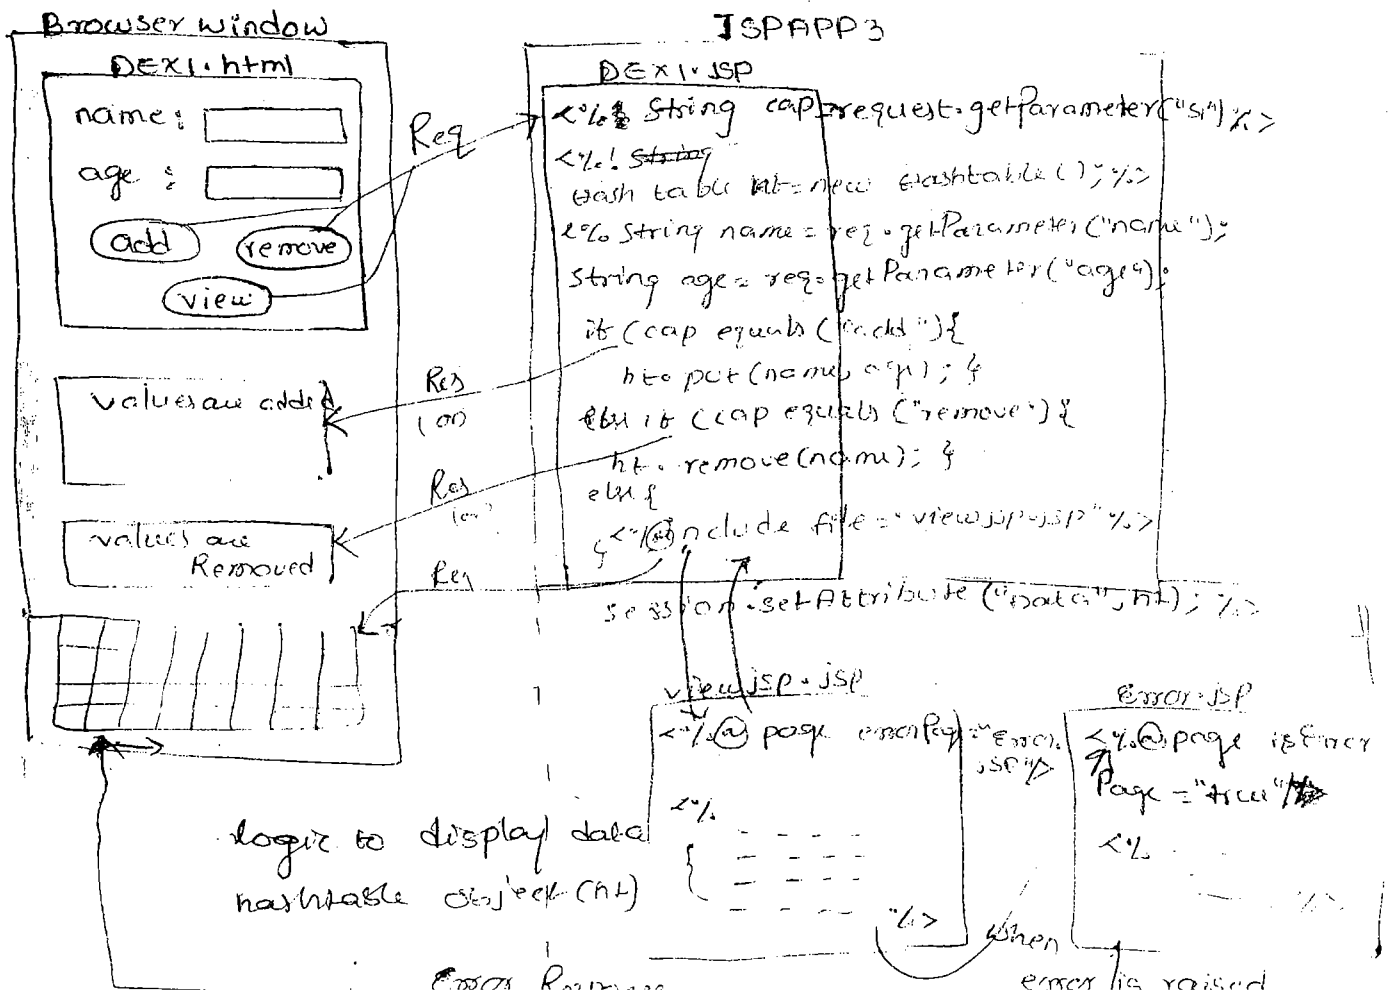 Browser window
DEX1.html
name:
age :
add
remove
view
values are added
values are
Removed
Req
Res
(or)
Res
(or)
Req
JSPAPP3
DEX1.JSP
<% String cap=request.getParameter("s1")%>
<%! String
Hash table ht=new Hashtable();%>
<% String name=req.getParameter("name");
String age=req.getParameter("age");
if (cap equals ("add"){
ht. put(name, age); }
else if (cap equals ("remove"){
ht. remove(name); }
else {
} <%@include file="viewjsp.jsp"%>
session.setAttribute("Data", ht); %>
viewjsp.jsp
<%@ page errorPage="Error.
jsp"%>
<%
%>
Error.jsp
<%@page isError
Page ="true"%>
<%
%>
Logic to display data
hashtable object (ht)
when
error is raised
Error Response